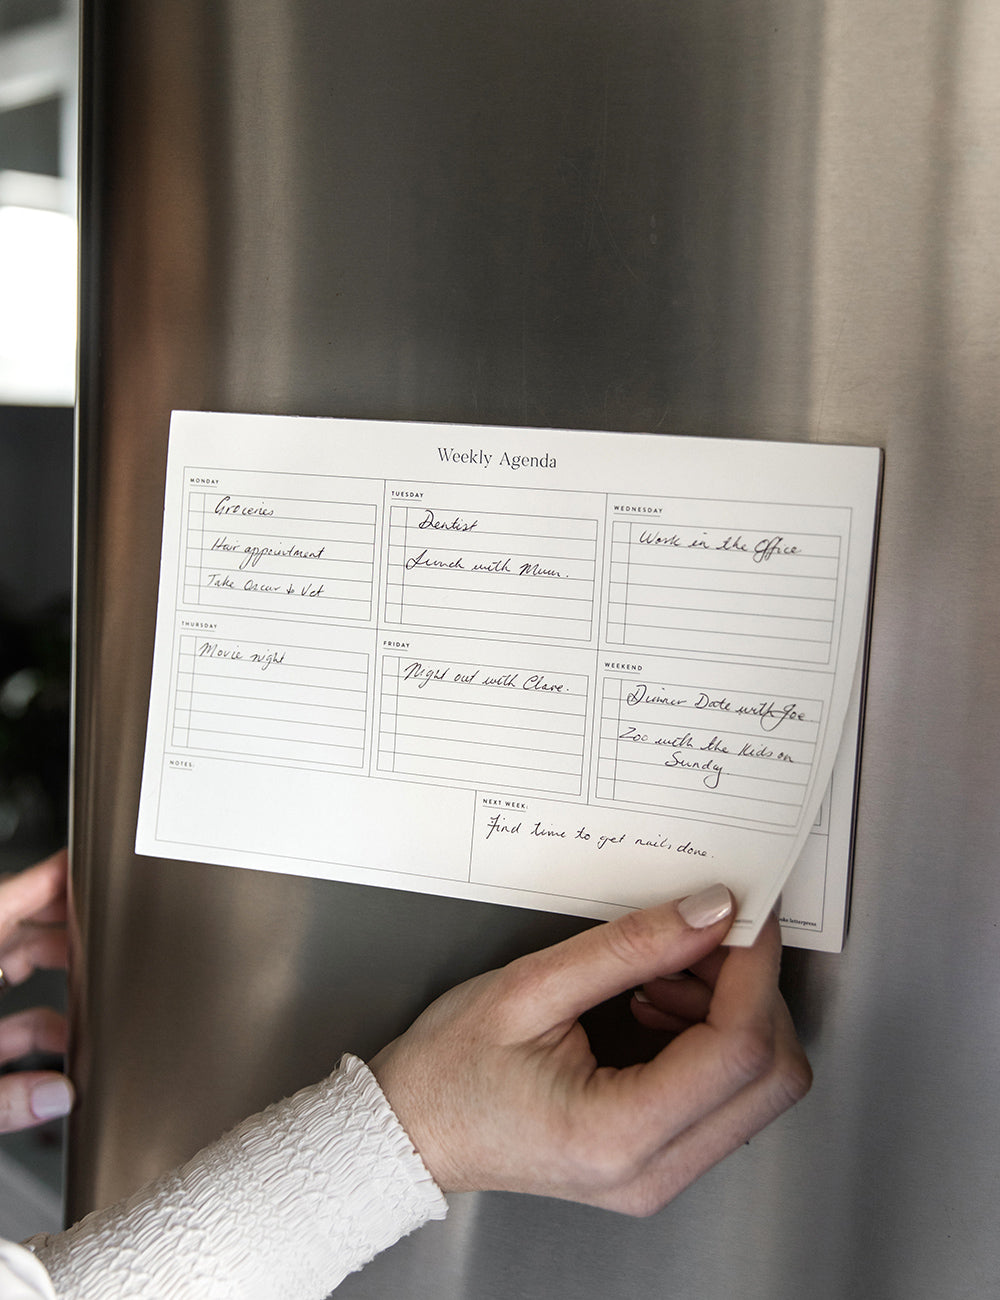 Weekly Agenda
MONDAY
Groceries
Hair appointment
Take Oscar to Vet
TUESDAY
Dentist
Lunch with Mum.
WEDNESDAY
Work in the Office
THURSDAY
Movie night
FRIDAY
Night out with Clare.
WEEKEND
Dinner Date with Joe
Zoo with the Kids on
Sunday.
NOTES:
NEXT WEEK:
Find time to get nails done.
letterpress